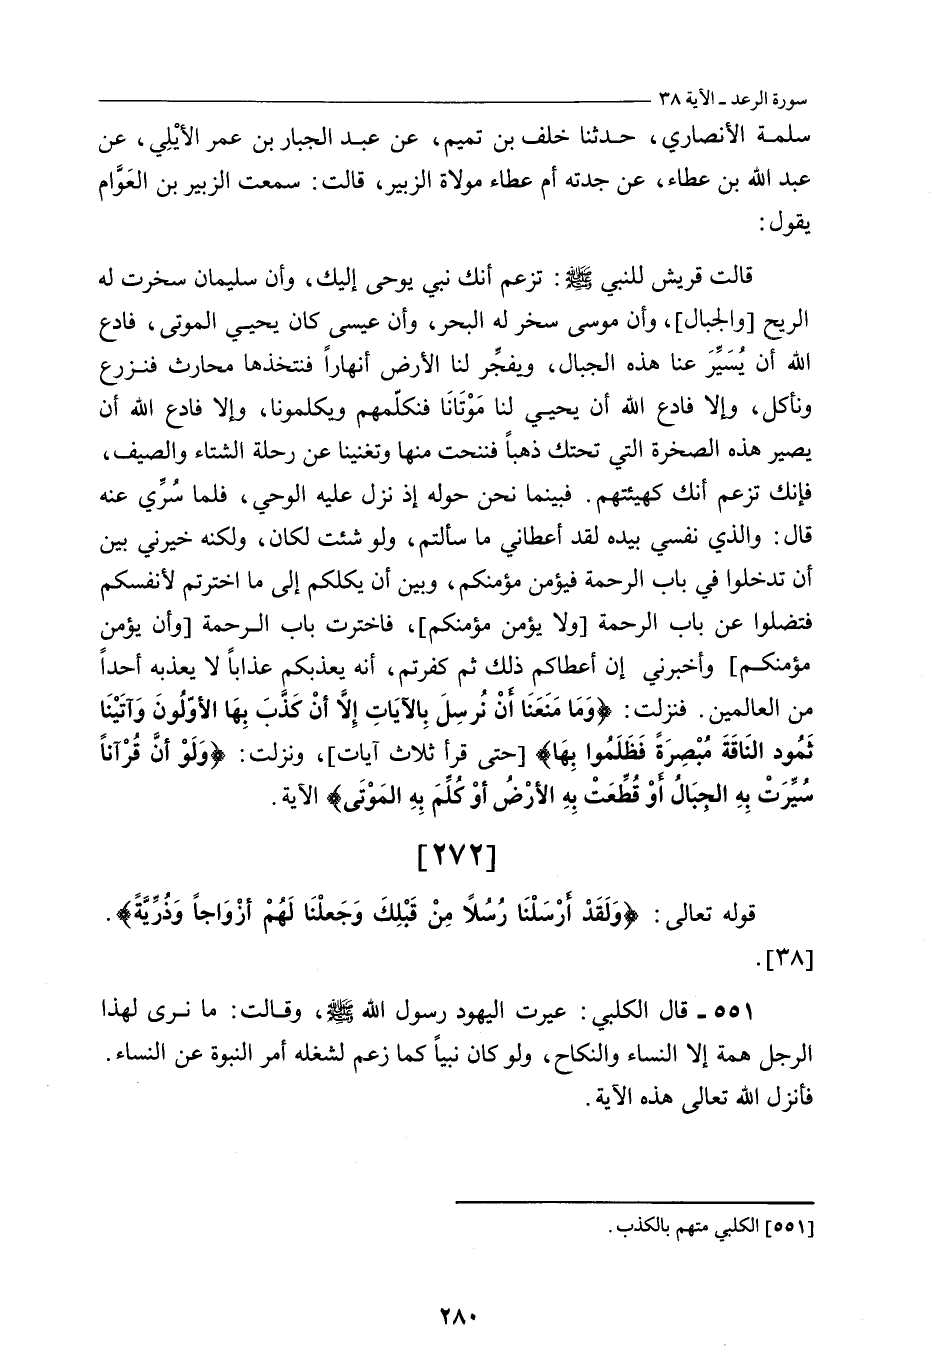 سورة الرعد ـ الآية ٣٨
سلمـة الأنصاري، حـدثنا خلف بن تميم، عن عبـد الجبار بن عمر الأَيْلِي، عن
عبد الله بن عطاء، عن جدته أم عطاء مولاة الزبير، قالت: سمعت الزبير بن العَوَّام
يقول:
قالت قريش للنبي ﷺ: تزعم أنك نبي يوحى إليك، وأن سليمان سخرت له
الريح [والجبال]، وأن موسى سخر له البحر، وأن عيسى كان يحيـي الموتى، فادع
الله أن يُسَيِّرَ عنا هذه الجبال، ويفجِّر لنا الأرض أنهاراً فنتخذها محارث فنـزرع
ونأكل، وإلا فادع الله أن يحيـي لنا مَوْتَانَا فنكلّمهم ويكلمونا، وإلا فادع الله أن
يصير هذه الصخرة التي تحتك ذهباً فننحت منها وتغنينا عن رحلة الشتاء والصيف،
فإنك تزعم أنك كهيئتهم. فبينما نحن حوله إذ نزل عليه الوحي، فلما سُرِّي عنه
قال: والذي نفسي بيده لقد أعطاني ما سألتم، ولو شئت لكان، ولكنه خيرني بين
أن تدخلوا في باب الرحمة فيؤمن مؤمنكم، وبين أن يكلكم إلى ما اخترتم لأنفسكم
فتضلوا عن باب الرحمة [ولا يؤمن مؤمنكم]، فاخترت باب الـرحمة [وأن يؤمن
مؤمنكـم] وأخبرني إن أعطاكم ذلك ثم كفرتم، أنه يعذبكم عذاباً لا يعذبه أحداً
من العالمين. فنزلت: ﴿وَمَا مَنَعَنَا أَنْ نُرسِلَ بِالآيَاتِ إِلَّا أنْ كَذَّبَ بِهَا الأوّلُونَ وَآتَيْنَا
ثَمُود النَاقَةَ مُبْصِرَةً فَظَلَمُوا بِهَا﴾ [حتى قرأ ثلاث آيات]، ونزلت: ﴿وَلَوْ أنَّ قُرْآناً
سُيِّرَتْ بِهِ الجِبَالُ أَوْ قُطِّعَتْ بِهِ الأرْضُ أوْ كُلِّمَ بِهِ المَوْتَى﴾ الآية.
[٢٧٢]
قوله تعالى: ﴿وَلَقَدْ أَرْسَلْنَا رُسُلًا مِنْ قَبْلِكَ وَجَعلْنَا لَهُمْ أزْوَاجاً وَذُرِّيَّةً﴾.
[٣٨].
٥٥١ ـ قال الكلبي: عيرت اليهود رسول الله ﷺ، وقـالت: ما نـرى لهذا
الرجل همة إلا النساء والنكاح، ولو كان نبياً كما زعم لشغله أمر النبوة عن النساء.
فأنزل الله تعالى هذه الآية.
[٥٥١] الكلبي متهم بالكذب.
٢٨٠